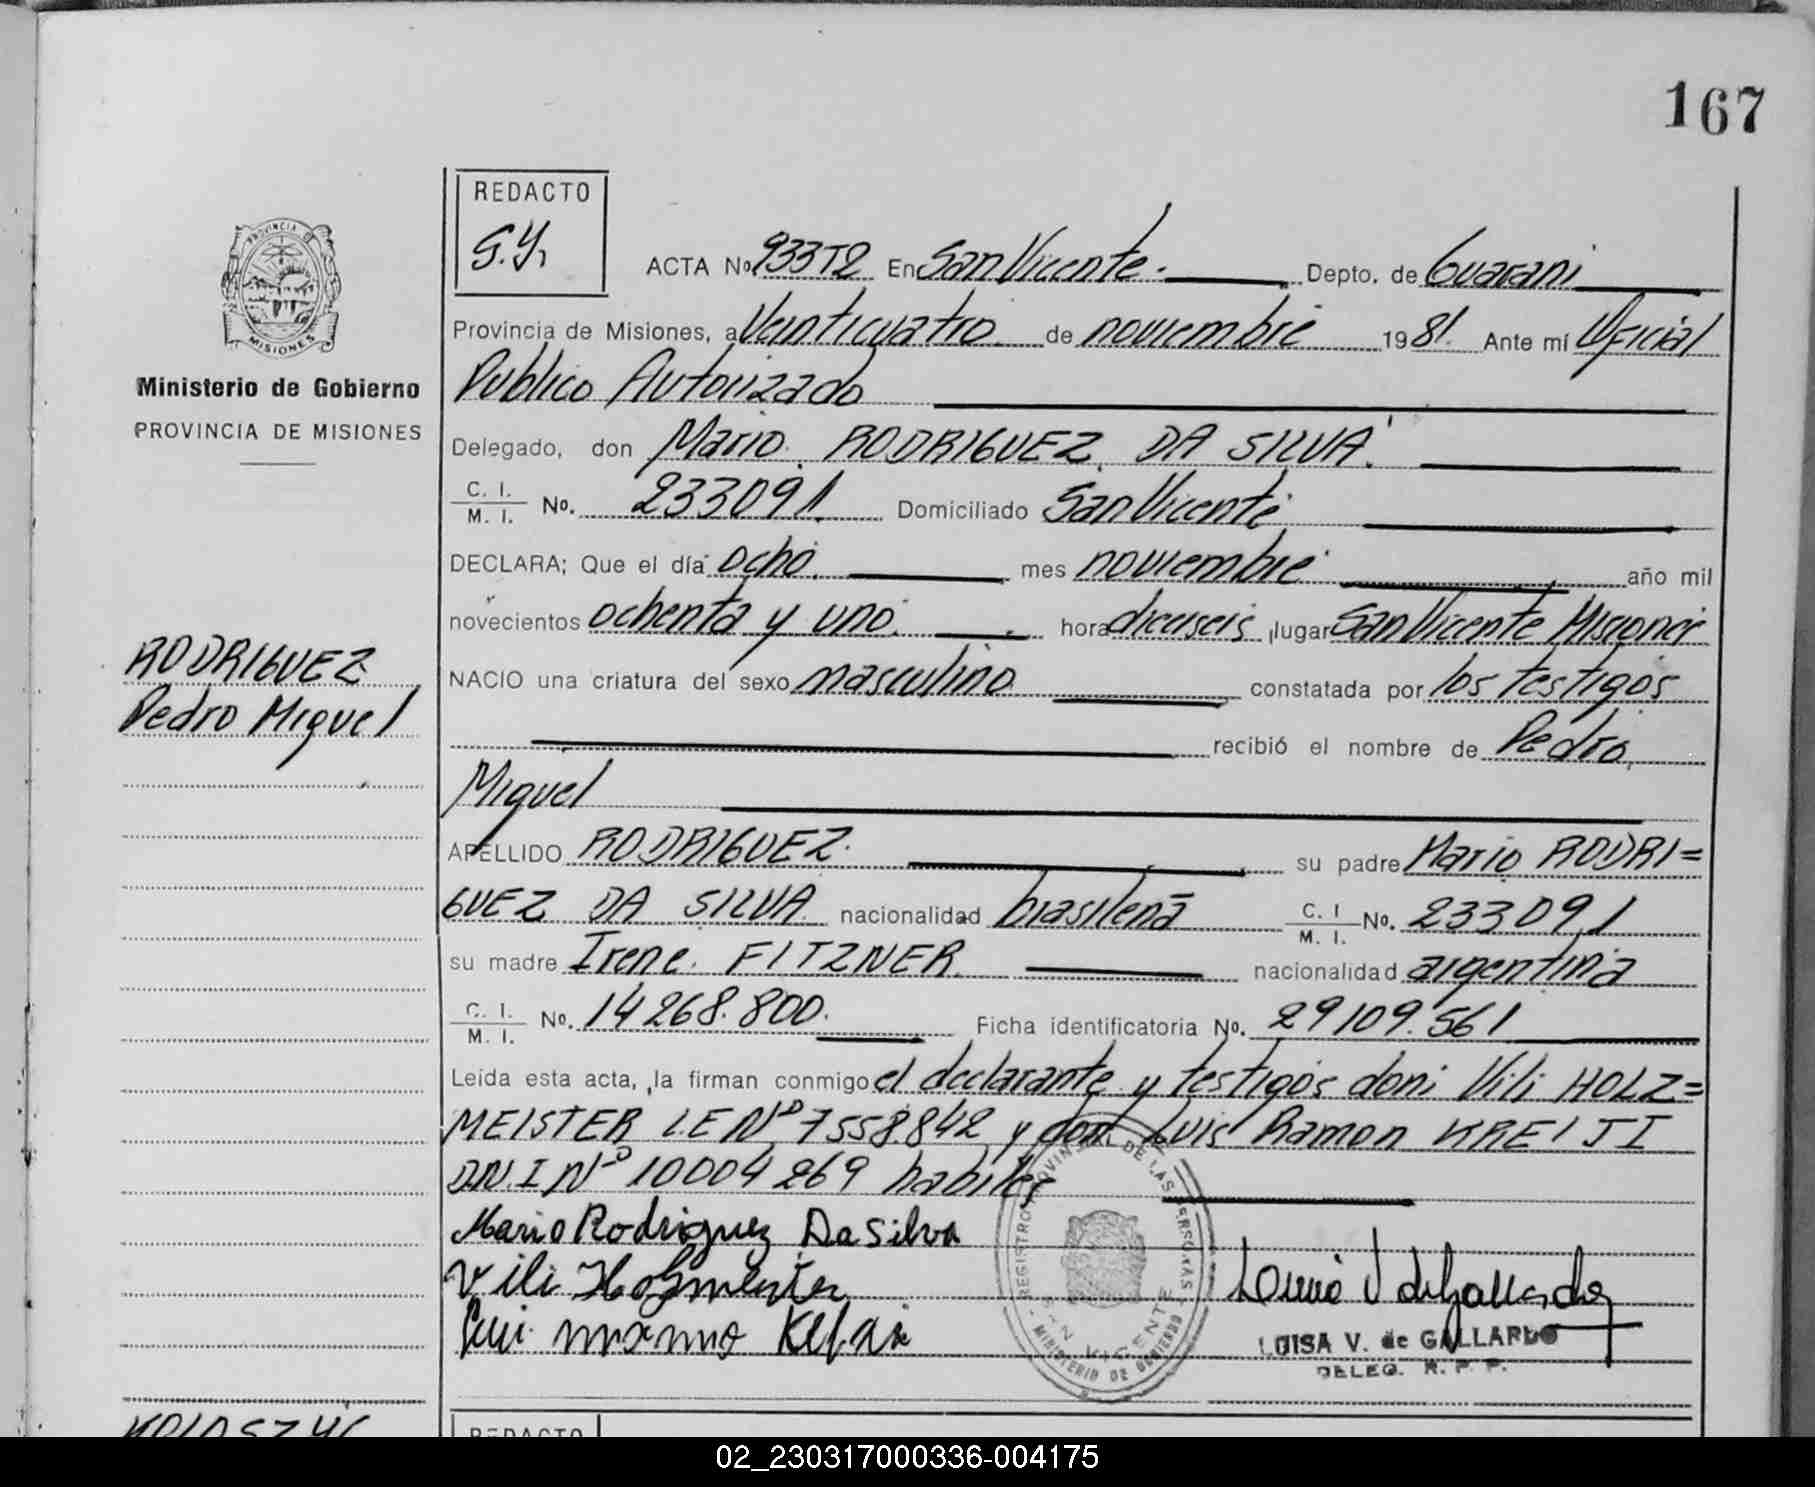 167
REDACTO
G.Y.
ACTA No 933T2 En San Vicente. Depto. de Guarani
Provincia de Misiones, a Veinticuatro de noviembre 1981. Ante mí Oficial
Publico Autorizado
Delegado, don Mario RODRIGUEZ DA SILVA.
C. I. / M. I. No. 233091. Domiciliado San Vicente
DECLARA; Que el día ocho. mes noviembre año mil
novecientos ochenta y uno. hora dieciseis lugar San Vicente Misiones
NACIO una criatura del sexo masculino constatada por los testigos
recibió el nombre de Pedro
Miguel
APELLIDO RODRIGUEZ. su padre Mario RODRI=
GUEZ DA SILVA nacionalidad brasileña C. I / M. I. No. 233091
su madre Irene. FITZNER nacionalidad argentina
C. I. / M. I. No. 14268.800. Ficha identificatoria No. 29109.561
Leída esta acta, la firman conmigo el declarante y testigos don: Vili HOLZ=
MEISTER L.E Nº 7558.842 y don Luis Ramon KREIJI
D.N.I Nº 10004269 habiles
Mario Rodriguez Da Silva
Vili
LUISA V. de GALLARDO
DELEG. R. P. P.
REGISTRO PROVINCIAL DE LAS PERSONAS
SAN VICENTE
MINISTERIO DE GOBIERNO
PROVINCIA DE
MISIONES
Ministerio de Gobierno
PROVINCIA DE MISIONES
RODRIGUEZ
Pedro Miguel
REDACTO
02_230317000336-004175